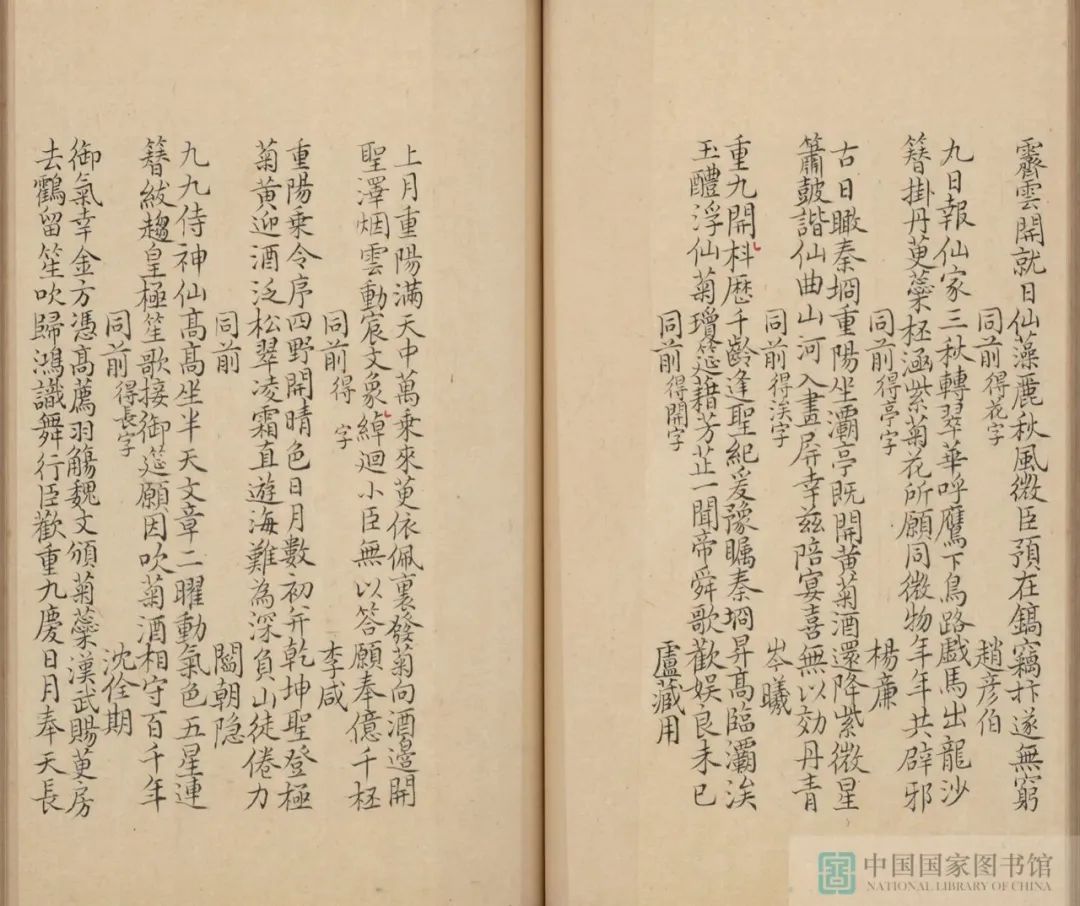 霽雲開就日仙藻麗秋風微臣預在鎬竊抃遂無窮
同前得花字 趙彦伯
九日報仙家三秋轉翠華呼鷹下鳥路戲馬出龍沙
簪掛丹萸蘂杯涵紫菊花所願同微物年年共辟邪
同前得亭字 楊廉
古日瞰秦坰重陽坐灞亭既開黄菊酒還降紫微星
簫鼓諧仙曲山河入畫屏幸兹陪宴喜無以効丹青
同前得涘字 岑曦
重九開科歷千齡逢聖紀爰豫矚秦坰昇高臨灞涘
玉醴浮仙菊瓊筵藉芳芷一聞帝舜歌歡娱良未已
同前得開字 盧藏用
上月重陽滿天中萬乘來萸依佩裏發菊向酒邊開
聖澤烟雲動宸文象緯迴小臣無以答願奉億千杯
同前得 字 李咸
重陽乘令序四野開晴色日月數初并乾坤聖登極
菊黄迎酒泛松翠凌霜直遊海難為深負山徒倦力
同前 閻朝隐
九九侍神仙高高坐半天文章二曜動氣色五星連
簪紱趨皇極笙歌接御筵願因吹菊酒相守百千年
同前得長字 沈佺期
御氣幸金方憑高薦羽觴魏文頒菊蘂漢武賜萸房
去鸖留笙吹歸鴻識舞行臣歡重九慶日月奉天長
中国国家图书馆
NATIONAL LIBRARY OF CHINA